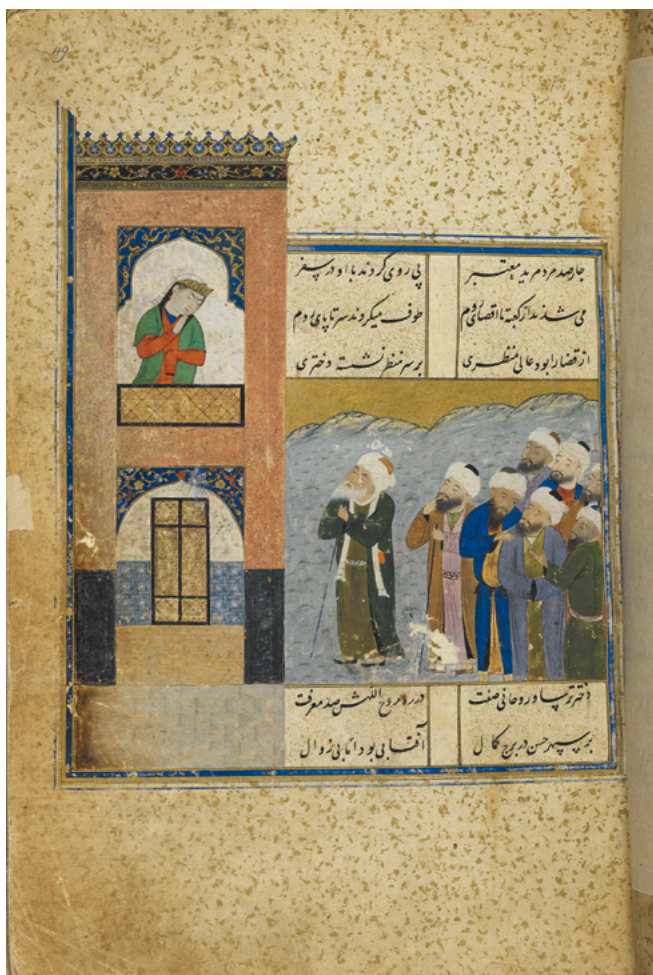 49
چارصد مرد مرید معتبر پی روی کردند با او در سفر
می شدند از کعبه تا اقصای روم طوف میکردند سر تا پای روم
از قضا را بود عالی منظری بر سر منظر نشسته دختری
دختر ترسا و روحانی صفت در ره روح اللهش صد معرفت
بر سپهر حسن در برج کمال آفتابی بود اما بی زوال